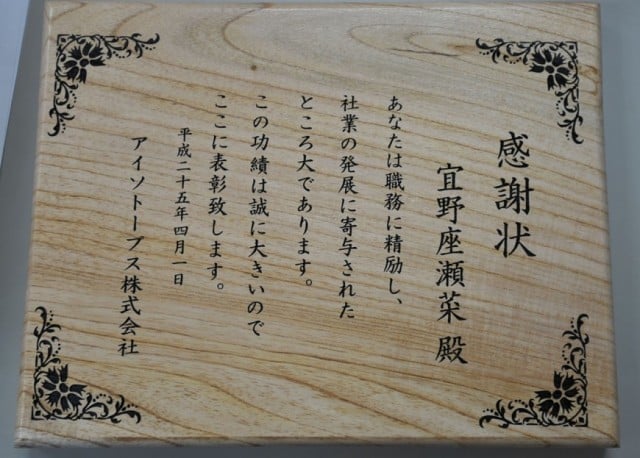 感謝状
宜野座瀬菜 殿
あなたは職務に精励し、
社業の発展に寄与された
ところ大であります。
この功績は誠に大きいので
ここに表彰致します。
平成二十五年四月一日
アイソトープス株式会社